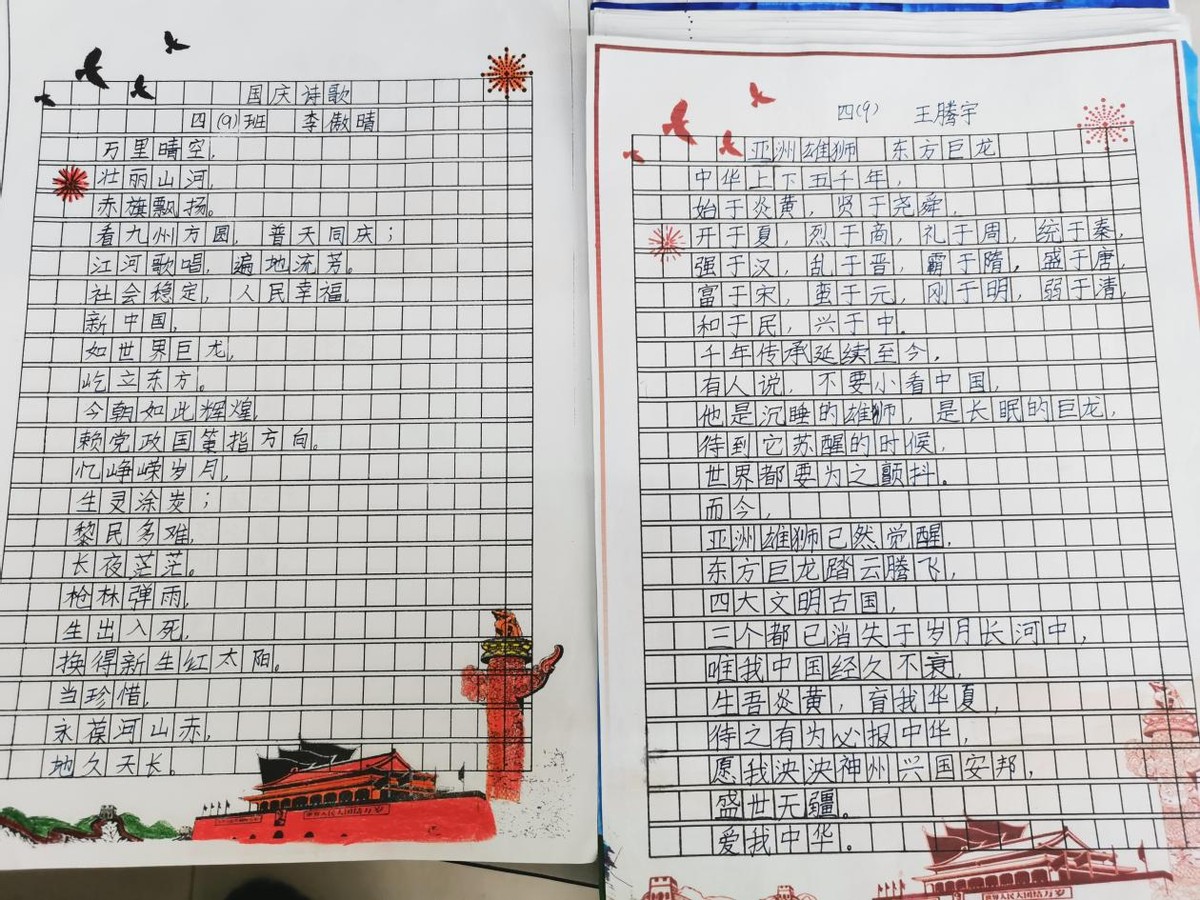 国庆诗歌
四(9)班 李傲晴
万里晴空，
壮丽山河，
赤旗飘扬。
看九州方圆，普天同庆；
江河歌唱，遍地流芳。
社会稳定，人民幸福，
新中国，
如世界巨龙，
屹立东方。
今朝如此辉煌，
赖党政国策指方向。
忆峥嵘岁月，
生灵涂炭；
黎民多难，
长夜茫茫。
枪林弹雨，
生出入死，
换得新生红太阳。
当珍惜，
永葆河山赤，
地久天长。
四(9) 王腾宇
亚洲雄狮 东方巨龙
中华上下五千年，
始于炎黄，贤于尧舜，
开于夏，烈于商，礼于周，统于秦，
强于汉，乱于晋，霸于隋，盛于唐，
富于宋，蛮于元，刚于明，弱于清，
和于民，兴于中。
千年传承延续至今，
有人说，不要小看中国，
他是沉睡的雄狮，是长眠的巨龙，
待到它苏醒的时候，
世界都要为之颤抖。
而今，
亚洲雄狮已然觉醒，
东方巨龙踏云腾飞，
四大文明古国，
三个都已消失于岁月长河中，
唯我中国经久不衰，
生吾炎黄，育我华夏，
待之有为必报中华，
愿我泱泱神州兴国安邦，
盛世无疆。
爱我中华。